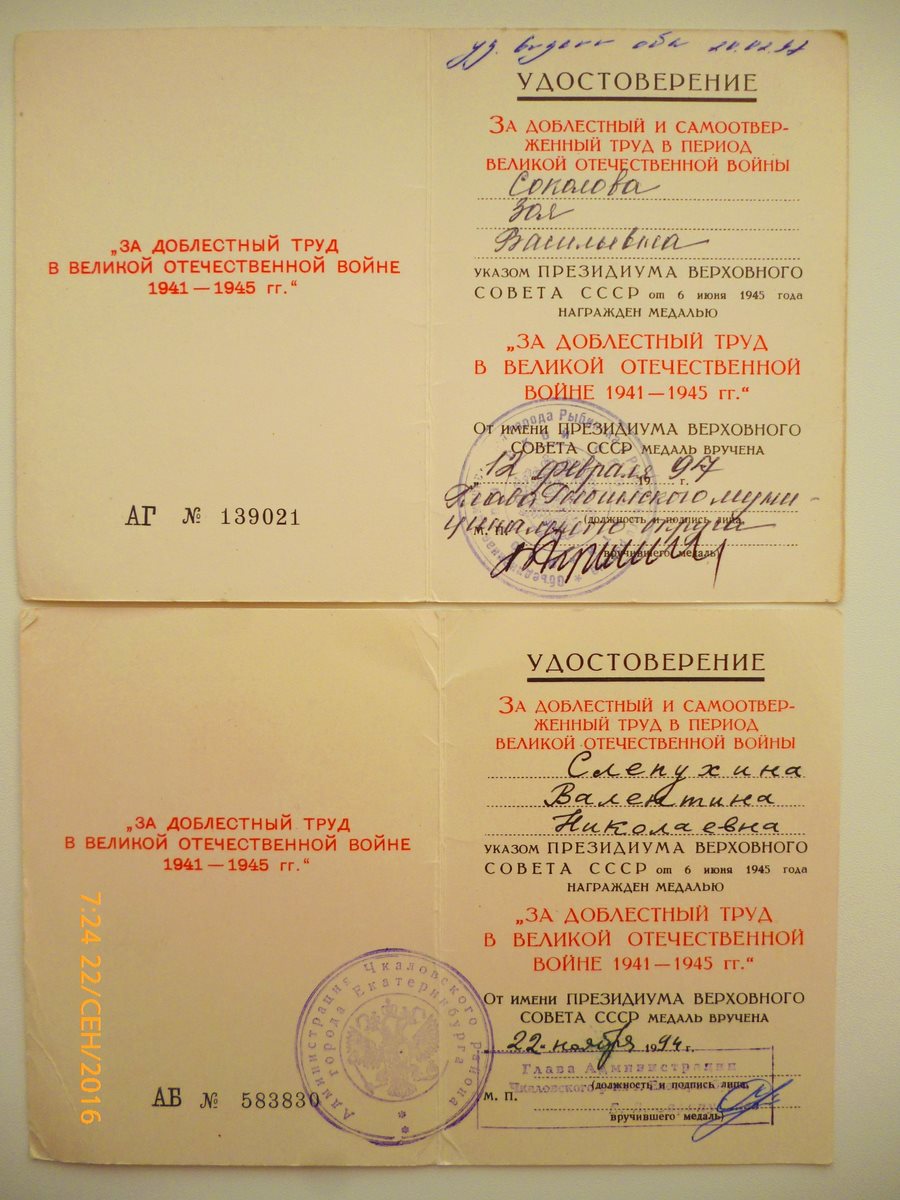 уд. выдано 20.02.97
УДОСТОВЕРЕНИЕ
ЗА ДОБЛЕСТНЫЙ И САМООТВЕР-
ЖЕННЫЙ ТРУД В ПЕРИОД
ВЕЛИКОЙ ОТЕЧЕСТВЕННОЙ ВОЙНЫ
Соколова
Зоя
Васильевна
УКАЗОМ ПРЕЗИДИУМА ВЕРХОВНОГО
СОВЕТА СССР от 6 июня 1945 года
НАГРАЖДЕН МЕДАЛЬЮ
„ЗА ДОБЛЕСТНЫЙ ТРУД
В ВЕЛИКОЙ ОТЕЧЕСТВЕННОЙ
ВОЙНЕ 1941—1945 гг.“
ОТ ИМЕНИ ПРЕЗИДИУМА ВЕРХОВНОГО
СОВЕТА СССР МЕДАЛЬ ВРУЧЕНА
„12 февраля 1997 г.
Глава муни-
ципального округа
(должность и подпись лица,
М. П.
вручившего медаль)
города Рыбинска
„ЗА ДОБЛЕСТНЫЙ ТРУД
В ВЕЛИКОЙ ОТЕЧЕСТВЕННОЙ ВОЙНЕ
1941—1945 гг.“
АГ № 139021
УДОСТОВЕРЕНИЕ
ЗА ДОБЛЕСТНЫЙ И САМООТВЕР-
ЖЕННЫЙ ТРУД В ПЕРИОД
ВЕЛИКОЙ ОТЕЧЕСТВЕННОЙ ВОЙНЫ
Слепухина
Валентина
Николаевна
УКАЗОМ ПРЕЗИДИУМА ВЕРХОВНОГО
СОВЕТА СССР от 6 июня 1945 года
НАГРАЖДЕН МЕДАЛЬЮ
„ЗА ДОБЛЕСТНЫЙ ТРУД
В ВЕЛИКОЙ ОТЕЧЕСТВЕННОЙ
ВОЙНЕ 1941—1945 гг.“
ОТ ИМЕНИ ПРЕЗИДИУМА ВЕРХОВНОГО
СОВЕТА СССР МЕДАЛЬ ВРУЧЕНА
22 ноября 1994 г.
Глава Администрации
Чкаловского
(должность и подпись лица,
М. П.
вручившего медаль)
„ЗА ДОБЛЕСТНЫЙ ТРУД
В ВЕЛИКОЙ ОТЕЧЕСТВЕННОЙ ВОЙНЕ
1941—1945 гг.“
Администрация Чкаловского Района
города Екатеринбурга
АБ № 583830
7:24 22/СЕН/2016